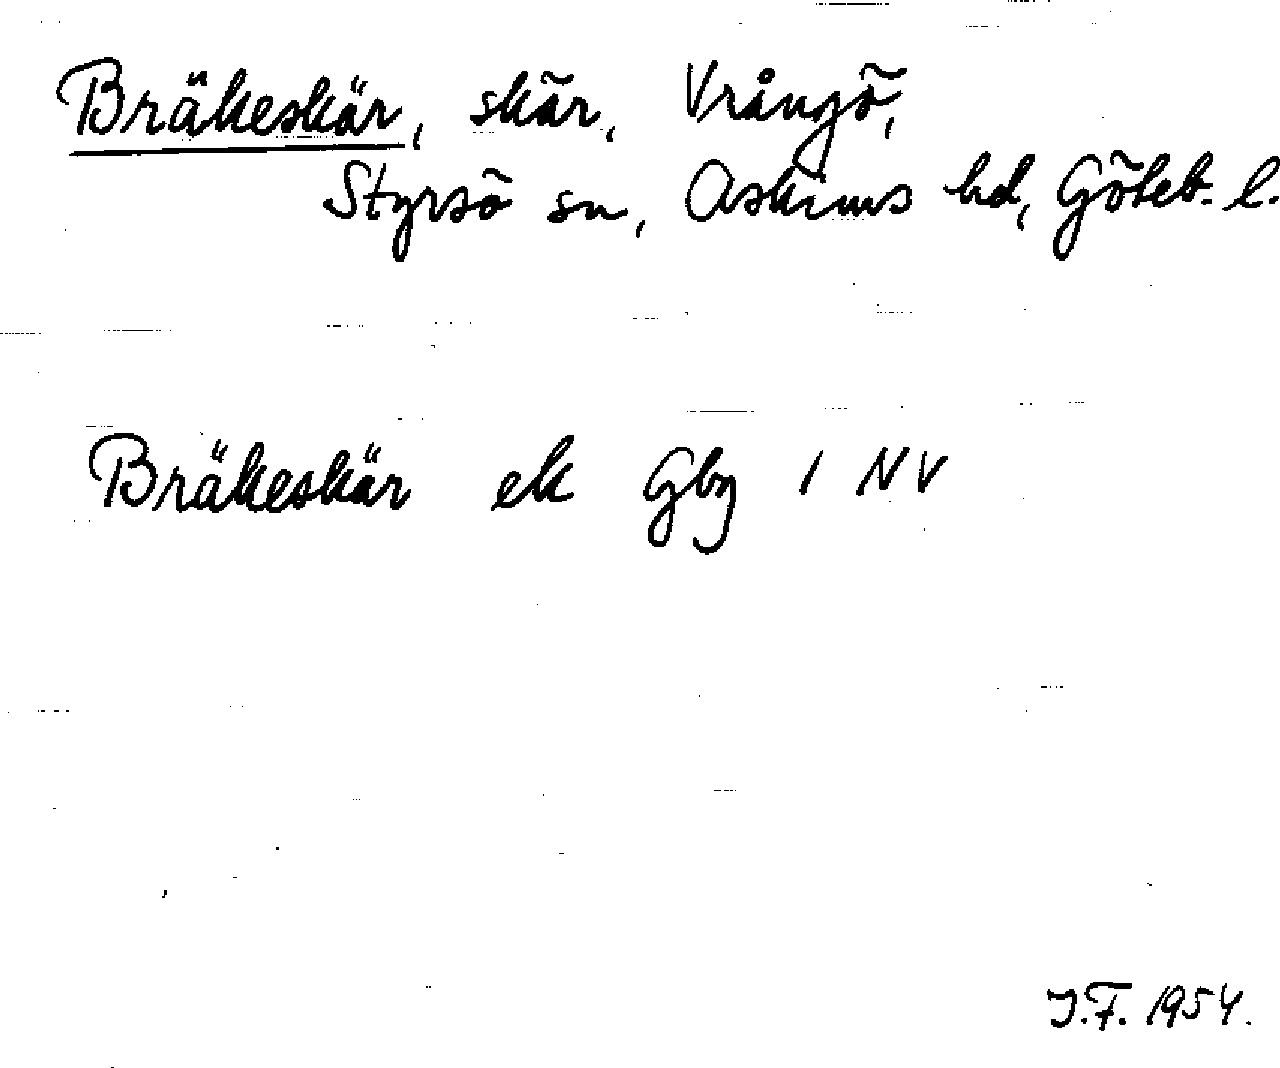 Bräkeskär, skär, Vrångö,
Styrsö sn, Askims hd, Göteb. l.
Bräkeskär ek Gbg 1 NV
J.F. 1954.